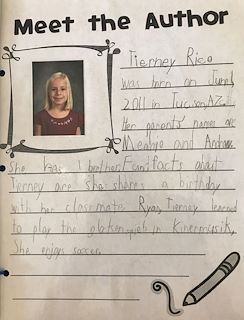 Meet the Author
Tierney Rice
was born on June
2011 in Tucson, AZ.
Her parents' names are
and Andrew.
She has 1 brother. Fun facts about
Tierney are she shares a birthday
with her classmate Ryan. Tierney learned
to play the glotsenspiel in Kindermusik.
She enjoys soccer.